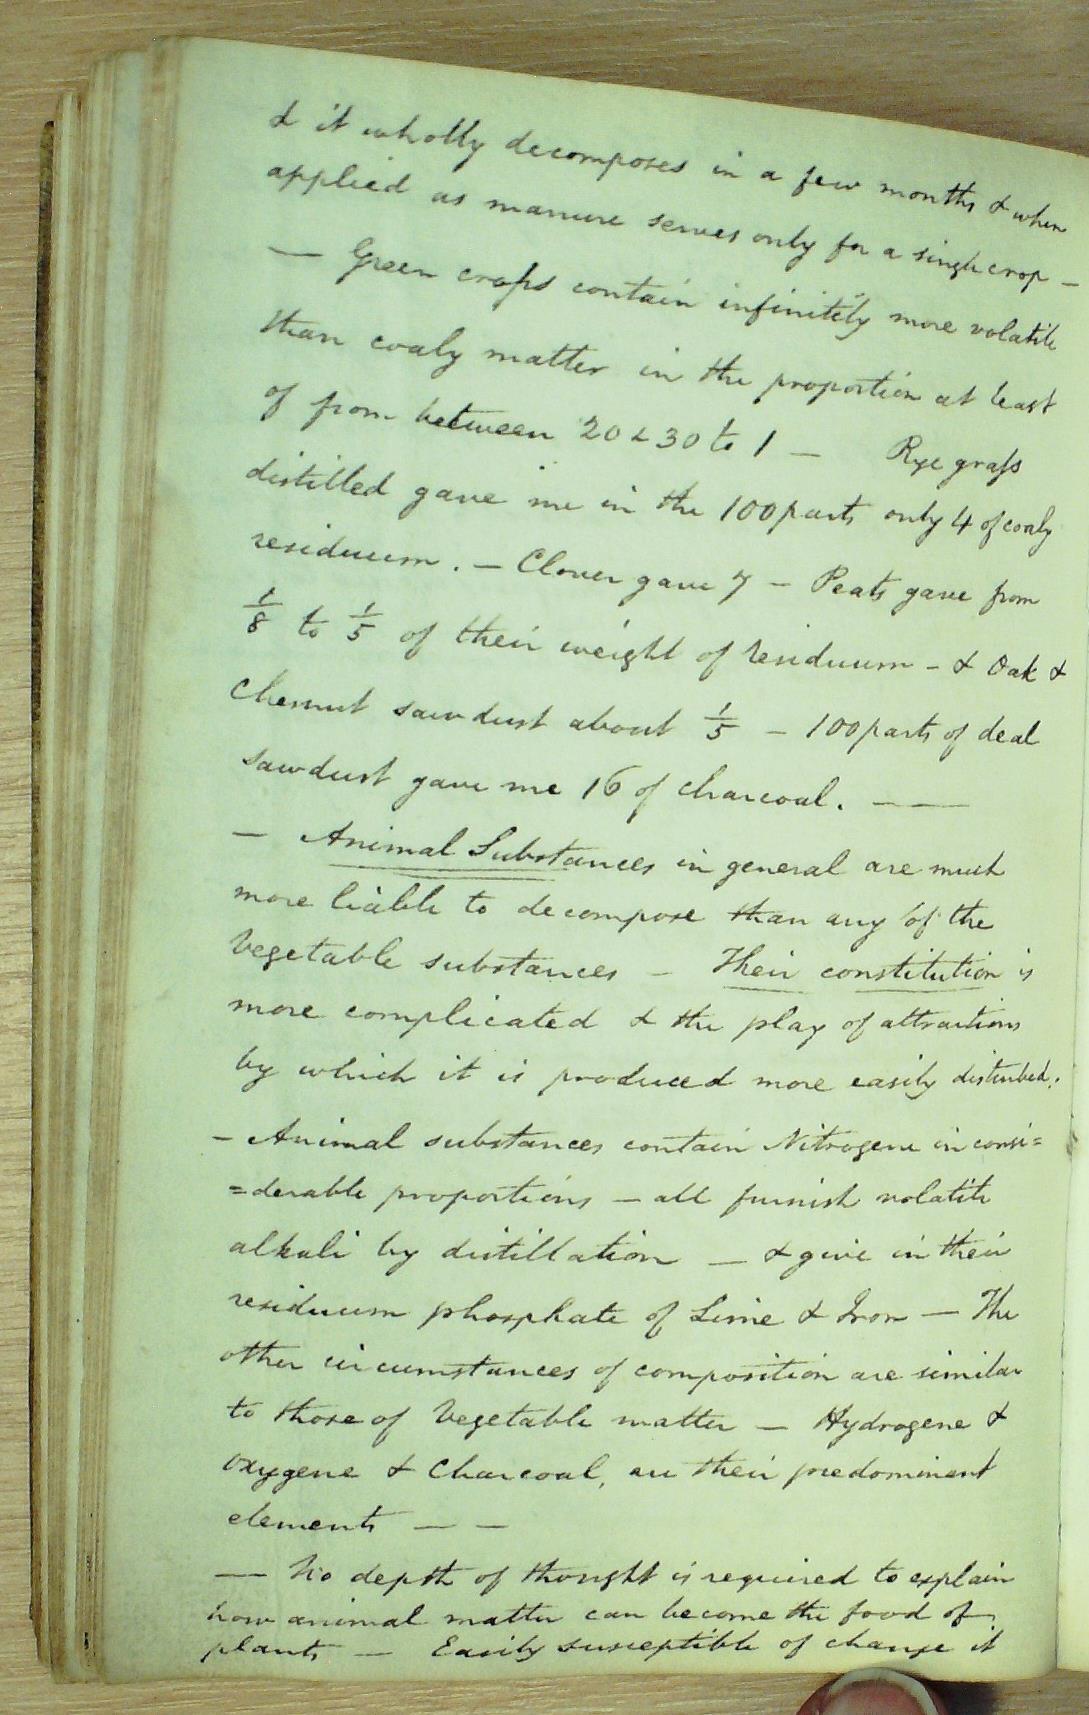 & it wholly decomposes in a few months & when
applied as manure serves only for a single crop –
— Green crops contain infinitely more volatile
than coaly matter in the proportion at least
of from between 20 & 30 to 1 — Rye graſs
distilled gave me in the 100 parts only 4 of coaly
residuum. – Clover gave 7 – Peats gave from
1/8 to 1/5 of their weight of residuum – & Oak &
Chesnut sawdust about 1/5 – 100 parts of deal
sawdust gave me 16 of charcoal. — —
— Animal Substances in general are much
more liable to decompose than any of the
Vegetable substances – Their constitution is
more complicated & the play of attractions
by which it is produced more easily disturbed.
– Animal substances contain Nitrogene in consi=
=derable proportions – all furnish volatile
alkali by distillation — & give in their
residuum phosphate of Lime & Iron — The
other circumstances of composition are similar
to those of Vegetable matter — Hydrogene &
oxygene & Charcoal, are their predominent
elements — —
— No depth of thought is required to explain
how animal matter can become the food of
plants — Easily susceptible of change it